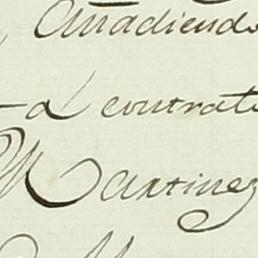 Añadiendo
a contrato
Martinez